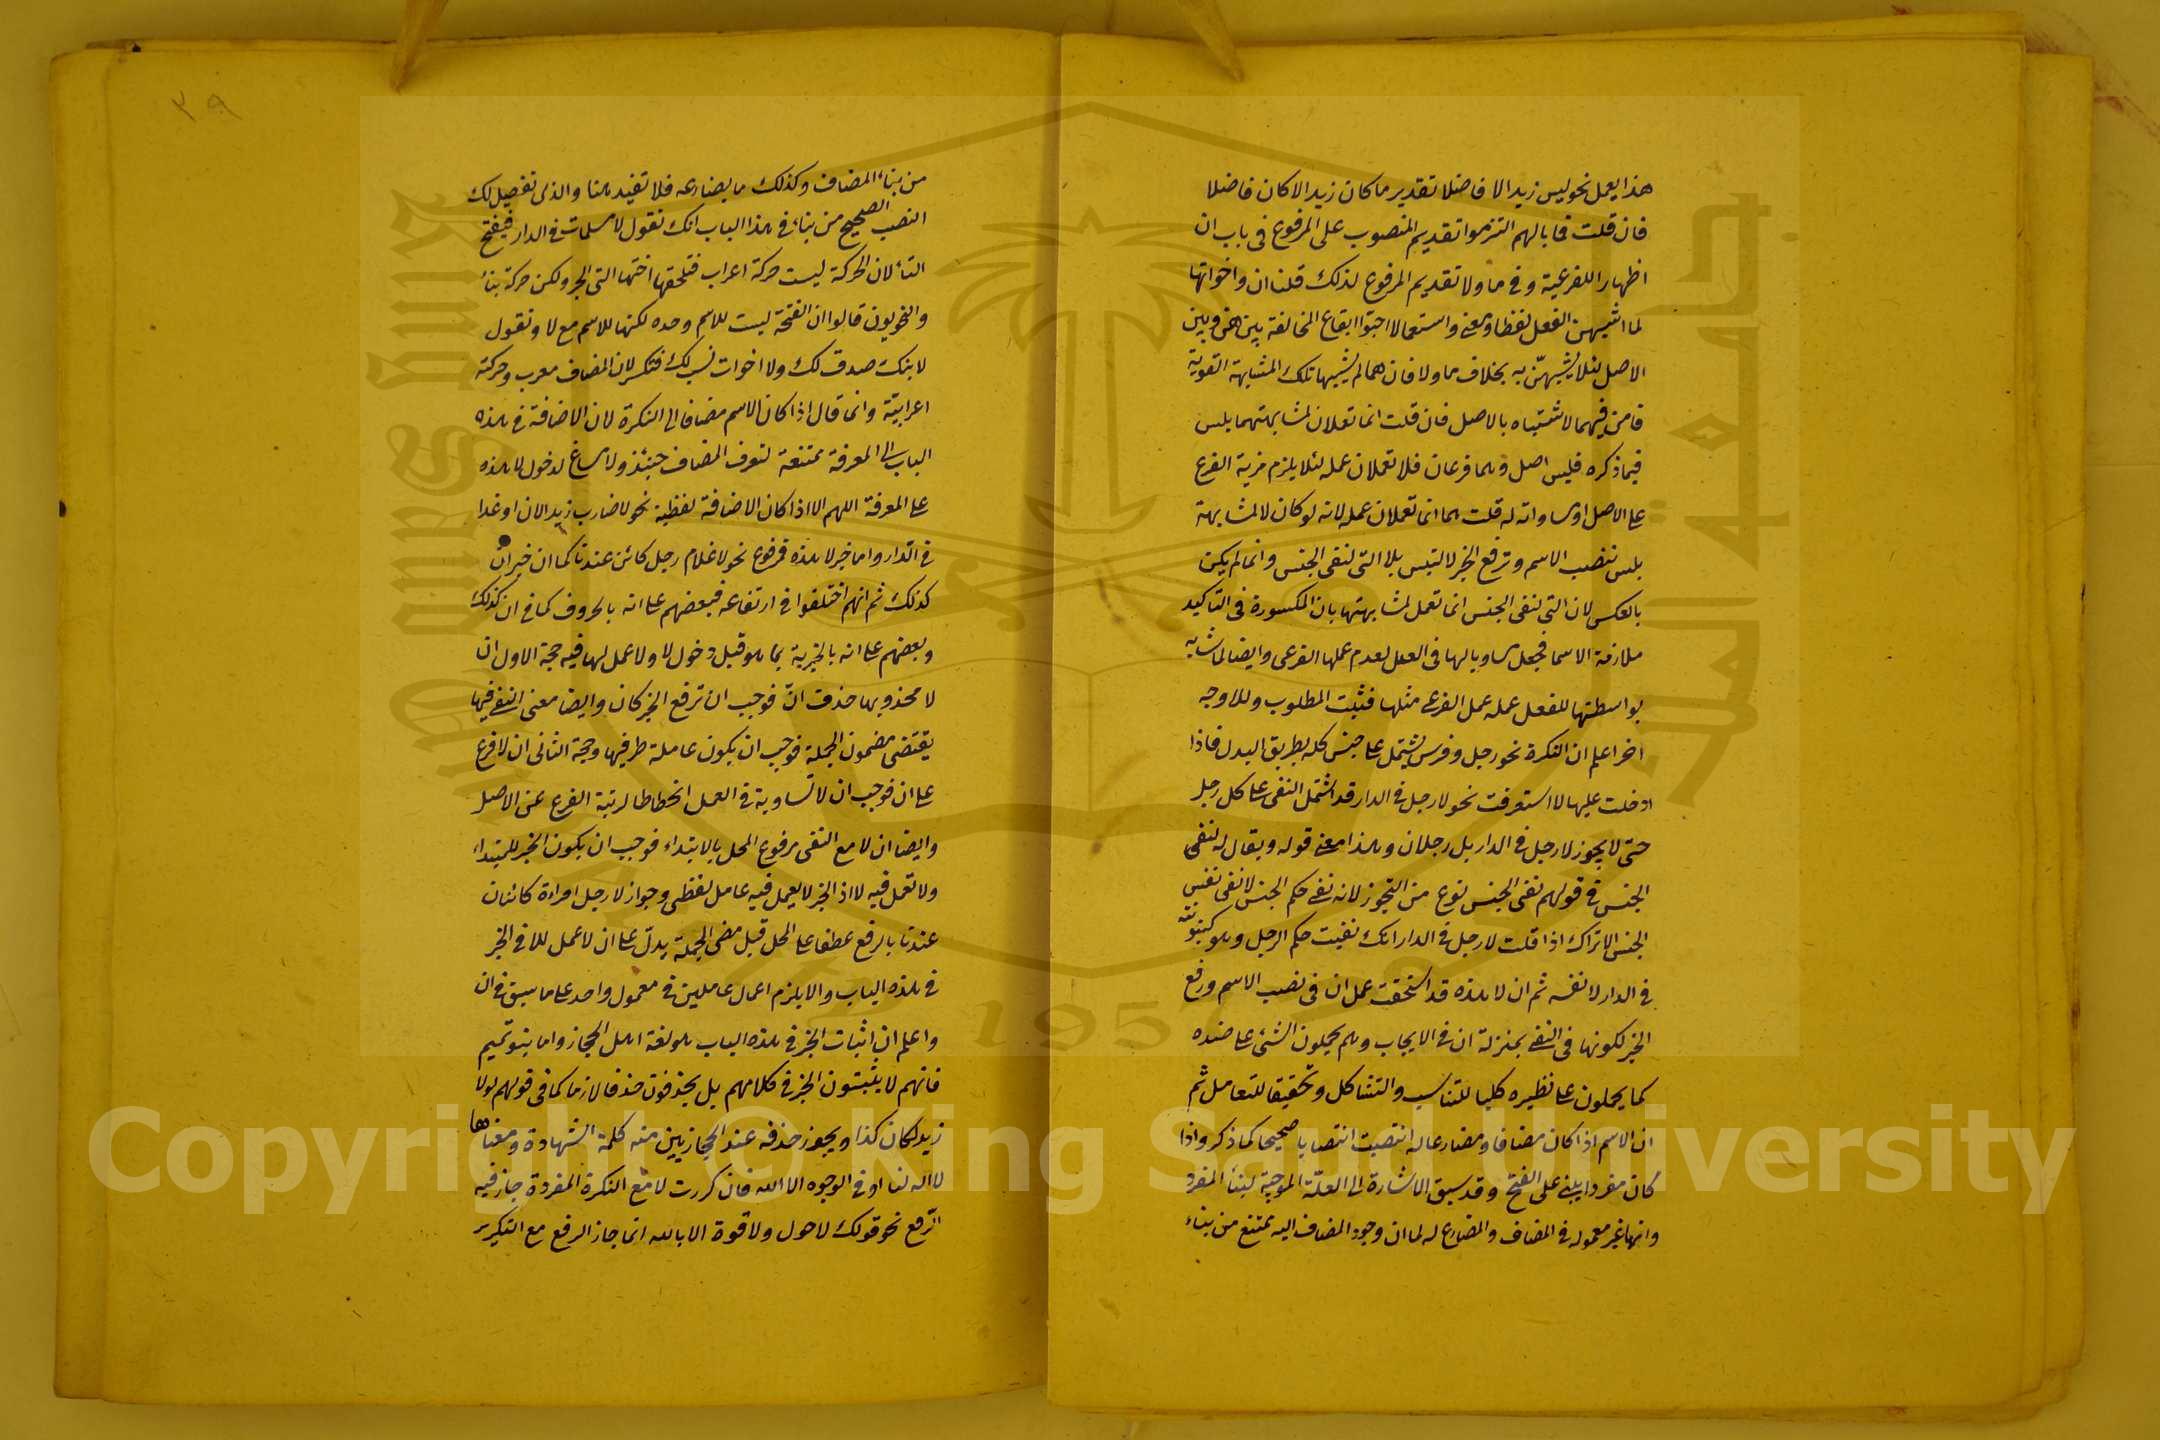 هذا يعمل نحو ليس زيد الا فاضلا تقدير ما كان زيد الا كان فاضلا
فان قلت فما بالهم التزموا تقديم المنصوب على المرفوع فى باب ان
اظهارا للفرعية وفى ما ولا تقديم المرفوع لذلك قلنا ان واخواتها
لما اشبهن الفعل لفظا ومعنى واستعمالا احبوا ايقاع المخالفة بينهن وبين
الاصل لئلا يشبهنّ به بخلاف ما ولا فان هما لم يشبها تلك المشابهة القوية
فامن فيهما الاشتباه بالاصل فان قلت انما تعلان لمشابهتهما بليس
فيما ذكره فليس اصل وهما فرعان فلا تعملان عمله لئلا يلزم مزية الفرع
على الاصل او مساواته له قلت هما انما تعملان عمله لانه لو كان لا لمشابهة
بليس تنصب الاسم وترفع الخبر لالتبس بلا التى لنفى الجنس وانما لم يكن
بالعكس لان التى لنفى الجنس انما تعمل لمشابهتها بان المكسورة فى التاكيد
ملازمة الاسما فجعل مساويا لها فى العمل لعدم عملها الفرعى وايضا لما شابه
بواسطتها للفعل عمله عمل الفرعى مثلها فثبت المطلوب وللا وجه
اخر اعلم ان النكرة نحو رجل وفرس يشتمل على جنس كله بطريق البدل فاذا
ادخلت عليها لا استغرقت نحو لا رجل فى الدار قد اشتمل النفى على كل رجل
حتى لا يجوز لا رجل فى الدار بل رجلان وهذا معنى قوله ويقال له نفى
الجنس فى قولهم نفى الجنس نوع من التجوز لانه نفى حكم الجنس لا نفى نفس
الجنس الا تراك اذا قلت لا رجل فى الدار انك نفيت حكم الرجل وهو كينونته
فى الدار لا نفسه ثم ان لا هذه قد استحقت عمل ان فى نصب الاسم ورفع
الخبر لكونها فى النفى بمنزلة ان فى الايجاب وهم يحملون الشئ على ضده
كما يحملون على نظيره طلبا للتناسب والتشاكل وتحقيقا للتعامل ثم
ان الاسم اذا كان مضافا ومضارعا له انتصبت انتصابا صحيحا كما ذكر واذا
كان مفردا يبنى على الفتح وقد سبق الاشارة الى العلّة الموجبة لبناء المفرد
وانها غير معموله فى المضاف والمضارع له لما ان وجود المضاف اليه ممتنع من بناء
٣٩
من بناء المضاف وكذلك ما يضارعه فلا تفيد هنا والذى تفصيل لك
النصب الصحيح من بناء فى هذا الباب انك تقول لا مسلمات فى الدار فيفتح
التاء لان الحركة ليست حركة اعراب فتلحقها اختها التى الجر ولكن حركة بناء
والنحويون قالوا ان الفتحة ليست للاسم وحده لكنها للاسم مع لا وتقول
لا بنت صدق لك ولا اخوات نسب لك فتكسر لان المضاف معرب وحركته
اعرابيّة وانما قال اذا كان الاسم مضافا الى النكرة لان الاضافة فى هذه
الباب الى المعرفة ممتنعة لتعرف المضاف حينئذ ولا مساغ لدخول لا هذه
على المعرفة اللهم الا اذا كان الاضافة لفظية نحو لا ضارب زيد الان او غدا
فى الدار واما خبر لا هذه فمرفوع نحو لا غلام رجل كائن عندنا كما ان خبر ان
كذلك ثم انهم اختلفوا فى ارتفاعه فبعضهم على انه بالحروف كما فى ان كذلك
وبعضهم على انه بالخبرية بما هو قبل دخول لا ولا عمل لها فيه حجة الاول ان
لا محذو بها حذو انّ فوجب ان ترفع الخبر كان وايضا معنى النفى فيها
يقتضى مضمون الجملة فوجب ان يكون عاملة طرفيها وحجة الثانى ان لا فرع
على ان فوجب ان لا تساويه فى العمل انحطاطا لرتبة الفرع عن الاصل
وايضا ان لا مع النفى مرفوع المحل بالابتداء فوجب ان يكون الخبر للمبتداء
ولا تعمل فيه لا اذ الخبر لا يعمل فيه عامل لفظى وجواز لا رجل وامراءة كائنان
عندنا بالرفع عطفا على المحل قبل مضى الجملة يدلّ على ان لا عمل للا فى الخبر
فى هذه الباب والا يلزم اعمال عاملين فى معمول واحد على ما سبق فى ان
واعلم ان اثبات الخبر فى هذه الباب هو لغة اهل الحجاز واما بنو تميم
فانهم لا يثبتون الخبر فى كلامهم بل يحذفون حذفا لازما كما فى قولهم لولا
زيد لكان كذا ويجوز حذفه عند الحجازيين منه كلمة الشهادة ومعناها
لا اله لنا او فى الوجود الا الله فان كررت لا مع النكرة المفردة جاز فيه
الرّفع نحو قولك لا حول ولا قوة الا بالله انما جاز الرفع مع التكرير
King Saud University
جامعة الملك سعود
1957
Copyright © King Saud University